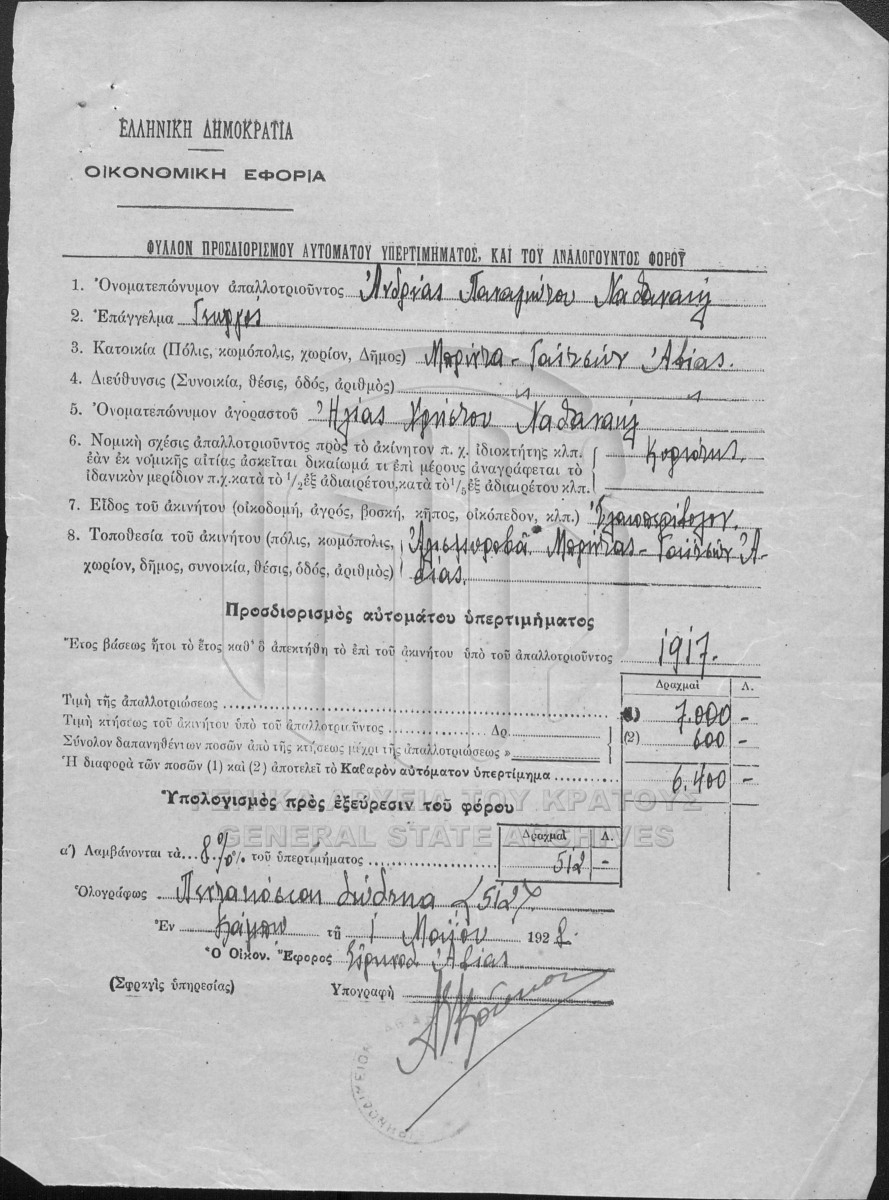 ΕΛΛΗΝΙΚΗ ΔΗΜΟΚΡΑΤΙΑ
ΟΙΚΟΝΟΜΙΚΗ ΕΦΟΡΙΑ
ΦΥΛΛΟΝ ΠΡΟΣΔΙΟΡΙΣΜΟΥ ΑΥΤΟΜΑΤΟΥ ΥΠΕΡΤΙΜΗΜΑΤΟΣ, ΚΑΙ ΤΟΥ ΑΝΑΛΟΓΟΥΝΤΟΣ ΦΟΡΟΥ
1. Ὀνοματεπώνυμον ἀπαλλοτριοῦντος Ἀνδρέας Παναγιώτου Ναθαναήλ
2. Ἐπάγγελμα Γεωργός
3. Κατοικία (Πόλις, κωμόπολις, χωρίον, Δῆμος) Μπρίντα - Γαϊτσῶν Ἀβίας.
4. Διεύθυνσις (Συνοικία, θέσις, ὁδός, ἀριθμὸς) " "
5. Ὀνοματεπώνυμον ἀγοραστοῦ Ἠλίας Χρήστου Ναθαναήλ
6. Νομικὴ σχέσις ἀπαλλοτριοῦντος πρὸς τὸ ἀκίνητον π. χ. ἰδιοκτήτης κλπ. Κύριότης.
ἐὰν ἐκ νομικῆς αἰτίας ἀσκεῖται δικαίωμά τι ἐπὶ μέρους ἀναγράφεται τὸ
ἰδανικὸν μερίδιον π.χ. κατὰ τὸ 1/2 ἐξ ἀδιαιρέτου, κατὰ τὸ 1/5 ἐξ ἀδιαιρέτου κλπ.
7. Εἶδος τοῦ ἀκινήτου (οἰκοδομή, ἀγρός, βοσκή, κῆπος, οἰκόπεδον, κλπ.) Ἐλαιοπερίβολον.
8. Τοποθεσία τοῦ ἀκινήτου (πόλις, κωμόπολις, Μπρίντας - Γαϊτσῶν Ἀ-
χωρίον, δῆμος, συνοικία, θέσις, ὁδός, ἀριθμὸς) βίας.
Προσδιορισμὸς αὐτομάτου ὑπερτιμήματος
Ἔτος βάσεως ἤτοι τὸ ἔτος καθ' ὃ ἀπεκτήθη τὸ ἐπὶ τοῦ ἀκινήτου ὑπὸ τοῦ ἀπαλλοτριοῦντος 1917.
Δραχμαὶ Λ.
Τιμὴ τῆς ἀπαλλοτριώσεως (1) 7.000 -
Τιμὴ κτήσεως τοῦ ἀκινήτου ὑπὸ τοῦ ἀπαλλοτριοῦντος Δρ. (2) 600 -
Σύνολον δαπανηθέντων ποσῶν ἀπὸ τῆς κτήσεως μέχρι τῆς ἀπαλλοτριώσεως »
Ἡ διαφορὰ τῶν ποσῶν (1) καὶ (2) ἀποτελεῖ τὸ Καθαρὸν αὐτόματον ὑπερτίμημα 6.400 -
Ὑπολογισμὸς πρὸς ἐξεύρεσιν τοῦ φόρου
ΓΕΝΙΚΑ ΑΡΧΕΙΑ ΤΟΥ ΚΡΑΤΟΥΣ
GENERAL STATE ARCHIVES
Δραχμαὶ Λ.
α') Λαμβάνονται τὰ 8 % % τοῦ ὑπερτιμήματος 512 -
Ὁλογράφως Πεντακόσιαι δώδεκα (512)
Ἐν Κάμπῳ τῇ 1 Μαΐου 1928.
Ὁ Οἰκον. Ἔφορος Ἀβίας
(Σφραγὶς ὑπηρεσίας) Ὑπογραφὴ